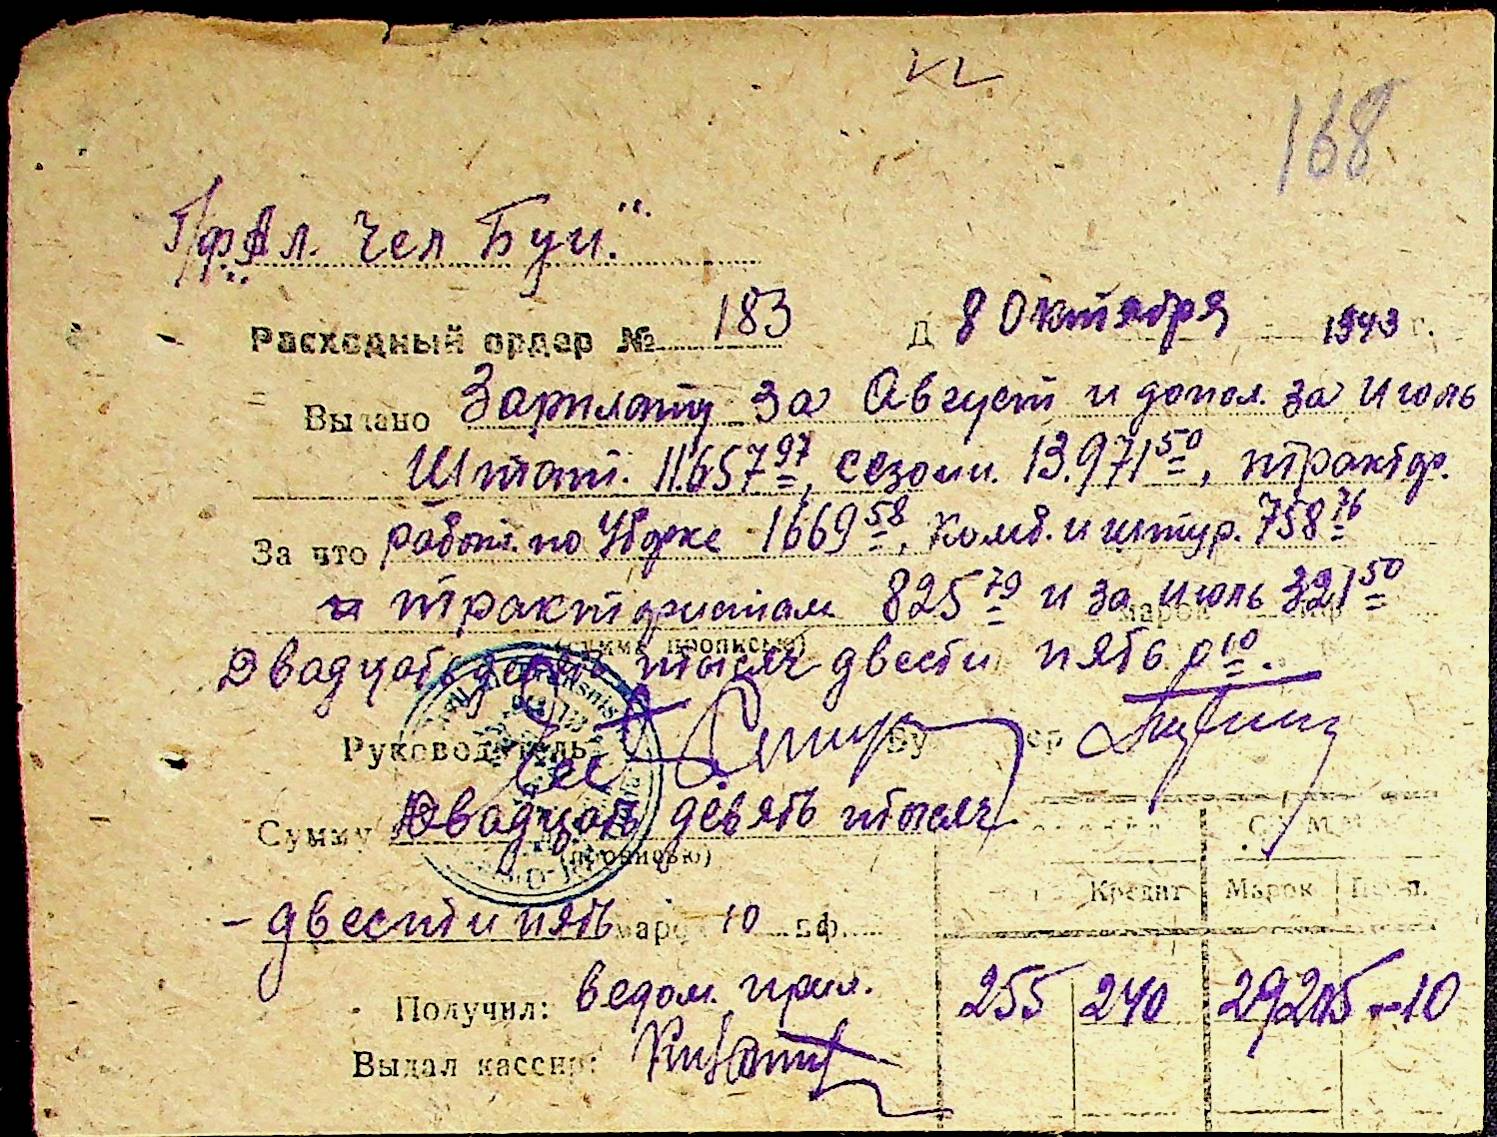 168
Чел Буи."
Расходный ордер № 183 Д 8 Октября 1943 г.
Выдано Зарплату за Август и допол. за Июль
Штат. 11.657 97, сезонн. 13.971 50, трактор.
За что работ. по Уборке 1669 58, Комб. и штур. 758 76
и трактористам 825 79 и за Июль 321 50
марок
(сумма прописью)
Двадцать девять тысяч двести пять р 10.
Руководитель
Сумму Двадцать девять тысяч
(прописью)
Кредит Марок
- двести пять марок 10 пф.
Получил: ведом. прил. 255 240 29205-10
Выдал кассир: